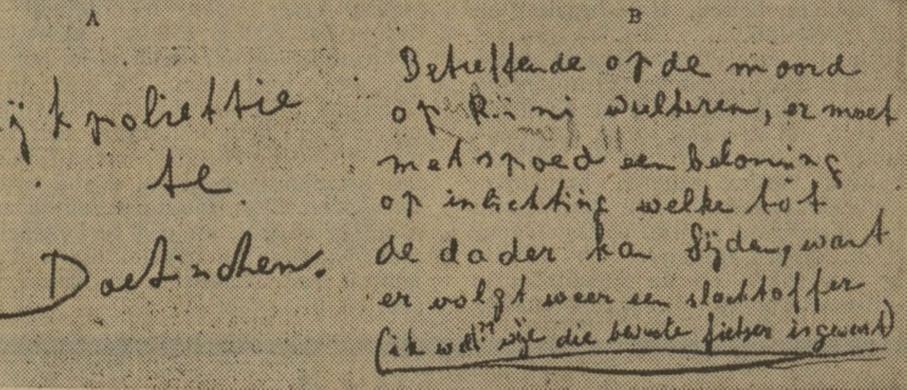 A
ijkpoliettie
te
Doetinchem.
B
Betreffende op de moord
op wulteren, er moet
met spoed een beloning
op inlichting welke tot
de dader kan lijden, want
er volgt weer een slachtoffer
(ik wie die bewuste fietser is geweest)